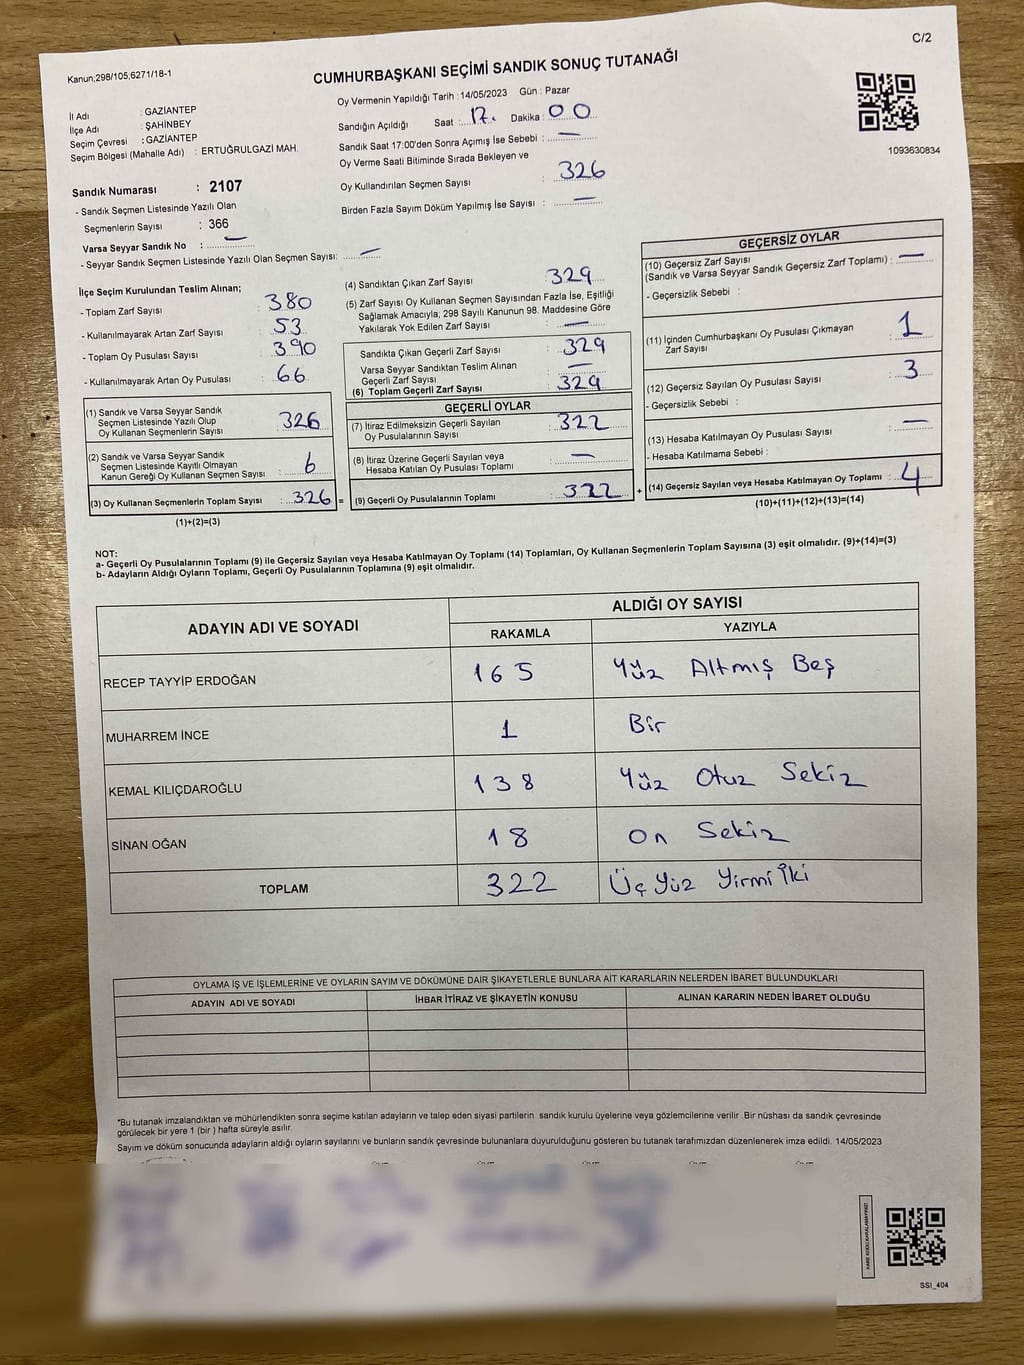 C/2
Kanun;298/105;6271/18-1
CUMHURBAŞKANI SEÇİMİ SANDIK SONUÇ TUTANAĞI
İl Adı : GAZİANTEP
İlçe Adı : ŞAHİNBEY
Seçim Çevresi : GAZİANTEP
Seçim Bölgesi (Mahalle Adı) : ERTUĞRULGAZİ MAH.
Oy Vermenin Yapıldığı Tarih : 14/05/2023 Gün : Pazar
Sandığın Açıldığı Saat : 17. Dakika : 00
Sandık Saat 17:00'den Sonra Açımış İse Sebebi : —
Oy Verme Saati Bitiminde Sırada Bekleyen ve
Oy Kullandırılan Seçmen Sayısı : 326
Birden Fazla Sayım Döküm Yapılmış İse Sayısı : —
1093630834
Sandık Numarası : 2107
- Sandık Seçmen Listesinde Yazılı Olan
Seçmenlerin Sayısı : 366
Varsa Seyyar Sandık No : —
- Seyyar Sandık Seçmen Listesinde Yazılı Olan Seçmen Sayısı: —
İlçe Seçim Kurulundan Teslim Alınan;
- Toplam Zarf Sayısı : 380
- Kullanılmayarak Artan Zarf Sayısı : 53
- Toplam Oy Pusulası Sayısı : 390
- Kullanılmayarak Artan Oy Pusulası : 66
(1) Sandık ve Varsa Seyyar Sandık
Seçmen Listesinde Yazılı Olup
Oy Kullanan Seçmenlerin Sayısı : 326
(2) Sandık ve Varsa Seyyar Sandık
Seçmen Listesinde Kayıtlı Olmayan
Kanun Gereği Oy Kullanan Seçmen Sayısı : 6
(3) Oy Kullanan Seçmenlerin Toplam Sayısı : 326 =
(1)+(2)=(3)
(4) Sandıktan Çıkan Zarf Sayısı : 329
(5) Zarf Sayısı Oy Kullanan Seçmen Sayısından Fazla İse, Eşitliği
Sağlamak Amacıyla; 298 Sayılı Kanunun 98. Maddesine Göre
Yakılarak Yok Edilen Zarf Sayısı : —
Sandıkta Çıkan Geçerli Zarf Sayısı : 329
Varsa Seyyar Sandıktan Teslim Alınan
Geçerli Zarf Sayısı : —
(6) Toplam Geçerli Zarf Sayısı : 329
GEÇERLİ OYLAR
(7) İtiraz Edilmeksizin Geçerli Sayılan
Oy Pusulalarının Sayısı : 322
(8) İtiraz Üzerine Geçerli Sayılan veya
Hesaba Katılan Oy Pusulası Toplamı : —
(9) Geçerli Oy Pusulalarının Toplamı : 322 +
GEÇERSİZ OYLAR
(10) Geçersiz Zarf Sayısı
(Sandık ve Varsa Seyyar Sandık Geçersiz Zarf Toplamı) : —
- Geçersizlik Sebebi :
(11) İçinden Cumhurbaşkanı Oy Pusulası Çıkmayan
Zarf Sayısı : 1
(12) Geçersiz Sayılan Oy Pusulası Sayısı : 3
- Geçersizlik Sebebi :
(13) Hesaba Katılmayan Oy Pusulası Sayısı : —
- Hesaba Katılmama Sebebi :
(14) Geçersiz Sayılan veya Hesaba Katılmayan Oy Toplamı : 4
(10)+(11)+(12)+(13)=(14)
NOT:
a- Geçerli Oy Pusulalarının Toplamı (9) ile Geçersiz Sayılan veya Hesaba Katılmayan Oy Toplamı (14) Toplamları, Oy Kullanan Seçmenlerin Toplam Sayısına (3) eşit olmalıdır. (9)+(14)=(3)
b- Adayların Aldığı Oyların Toplamı, Geçerli Oy Pusulalarının Toplamına (9) eşit olmalıdır.
ADAYIN ADI VE SOYADI
ALDIĞI OY SAYISI
RAKAMLA YAZIYLA
RECEP TAYYİP ERDOĞAN 165 Yüz Altmış Beş
MUHARREM İNCE 1 Bir
KEMAL KILIÇDAROĞLU 138 Yüz Otuz Sekiz
SİNAN OĞAN 18 On Sekiz
TOPLAM 322 Üç Yüz Yirmi İki
OYLAMA İŞ VE İŞLEMLERİNE VE OYLARIN SAYIM VE DÖKÜMÜNE DAİR ŞİKAYETLERLE BUNLARA AİT KARARLARIN NELERDEN İBARET BULUNDUKLARI
ADAYIN ADI VE SOYADI İHBAR İTİRAZ VE ŞİKAYETİN KONUSU ALINAN KARARIN NEDEN İBARET OLDUĞU
*Bu tutanak imzalandıktan ve mühürlendikten sonra seçime katılan adayların ve talep eden siyasi partilerin sandık kurulu üyelerine veya gözlemcilerine verilir .Bir nüshası da sandık çevresinde
görülecek bir yere 1 (bir ) hafta süreyle asılır.
Sayım ve döküm sonucunda adayların aldığı oyların sayılarını ve bunların sandık çevresinde bulunanlara duyurulduğunu gösteren bu tutanak tarafımızdan düzenlenerek imza edildi. 14/05/2023
KARE KODU KARALAMAYINIZ!
SSI_404